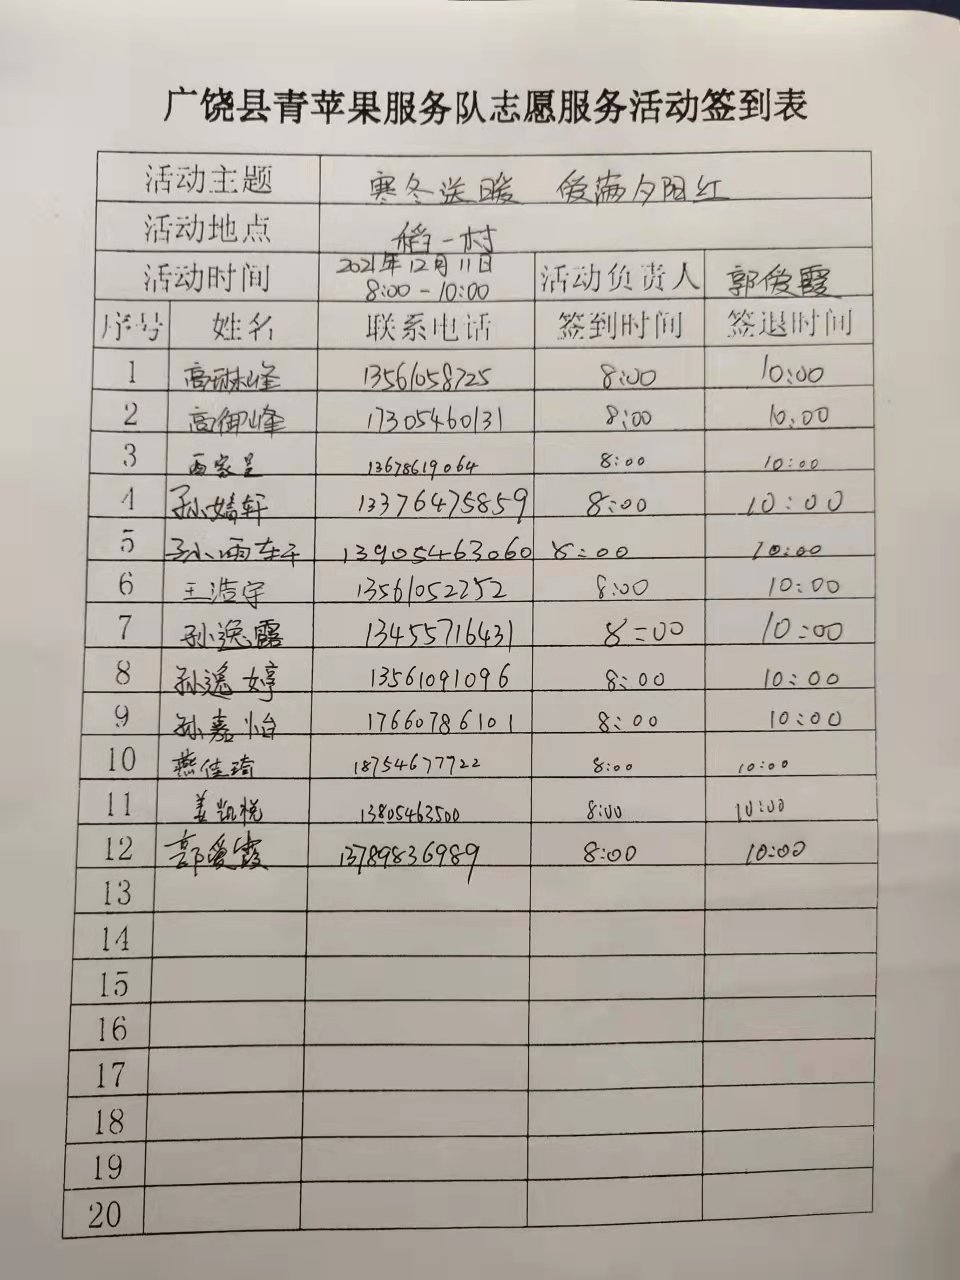 广饶县青苹果服务队志愿服务活动签到表
活动主题 寒冬送暖 爱满夕阳红
活动地点 稻一村
活动时间 2021年12月11日 8:00-10:00 活动负责人 郭爱霞
序号 姓名 联系电话 签到时间 签退时间
1 高琳峰 13561058725 8:00 10:00
2 高御峰 17305460131 8:00 10:00
3 西家呈 13678619064 8:00 10:00
4 孙婧轩 13376475859 8:00 10:00
5 孙雨轩 13905463060 8:00 10:00
6 王浩宇 13561052252 8:00 10:00
7 孙逸露 13455716431 8:00 10:00
8 孙逸婷 13561091096 8:00 10:00
9 孙嘉怡 17660786101 8:00 10:00
10 燕佳琦 18754677722 8:00 10:00
11 姜凯悦 13805463500 8:00 10:00
12 郭爱霞 13789836989 8:00 10:00
13
14
15
16
17
18
19
20